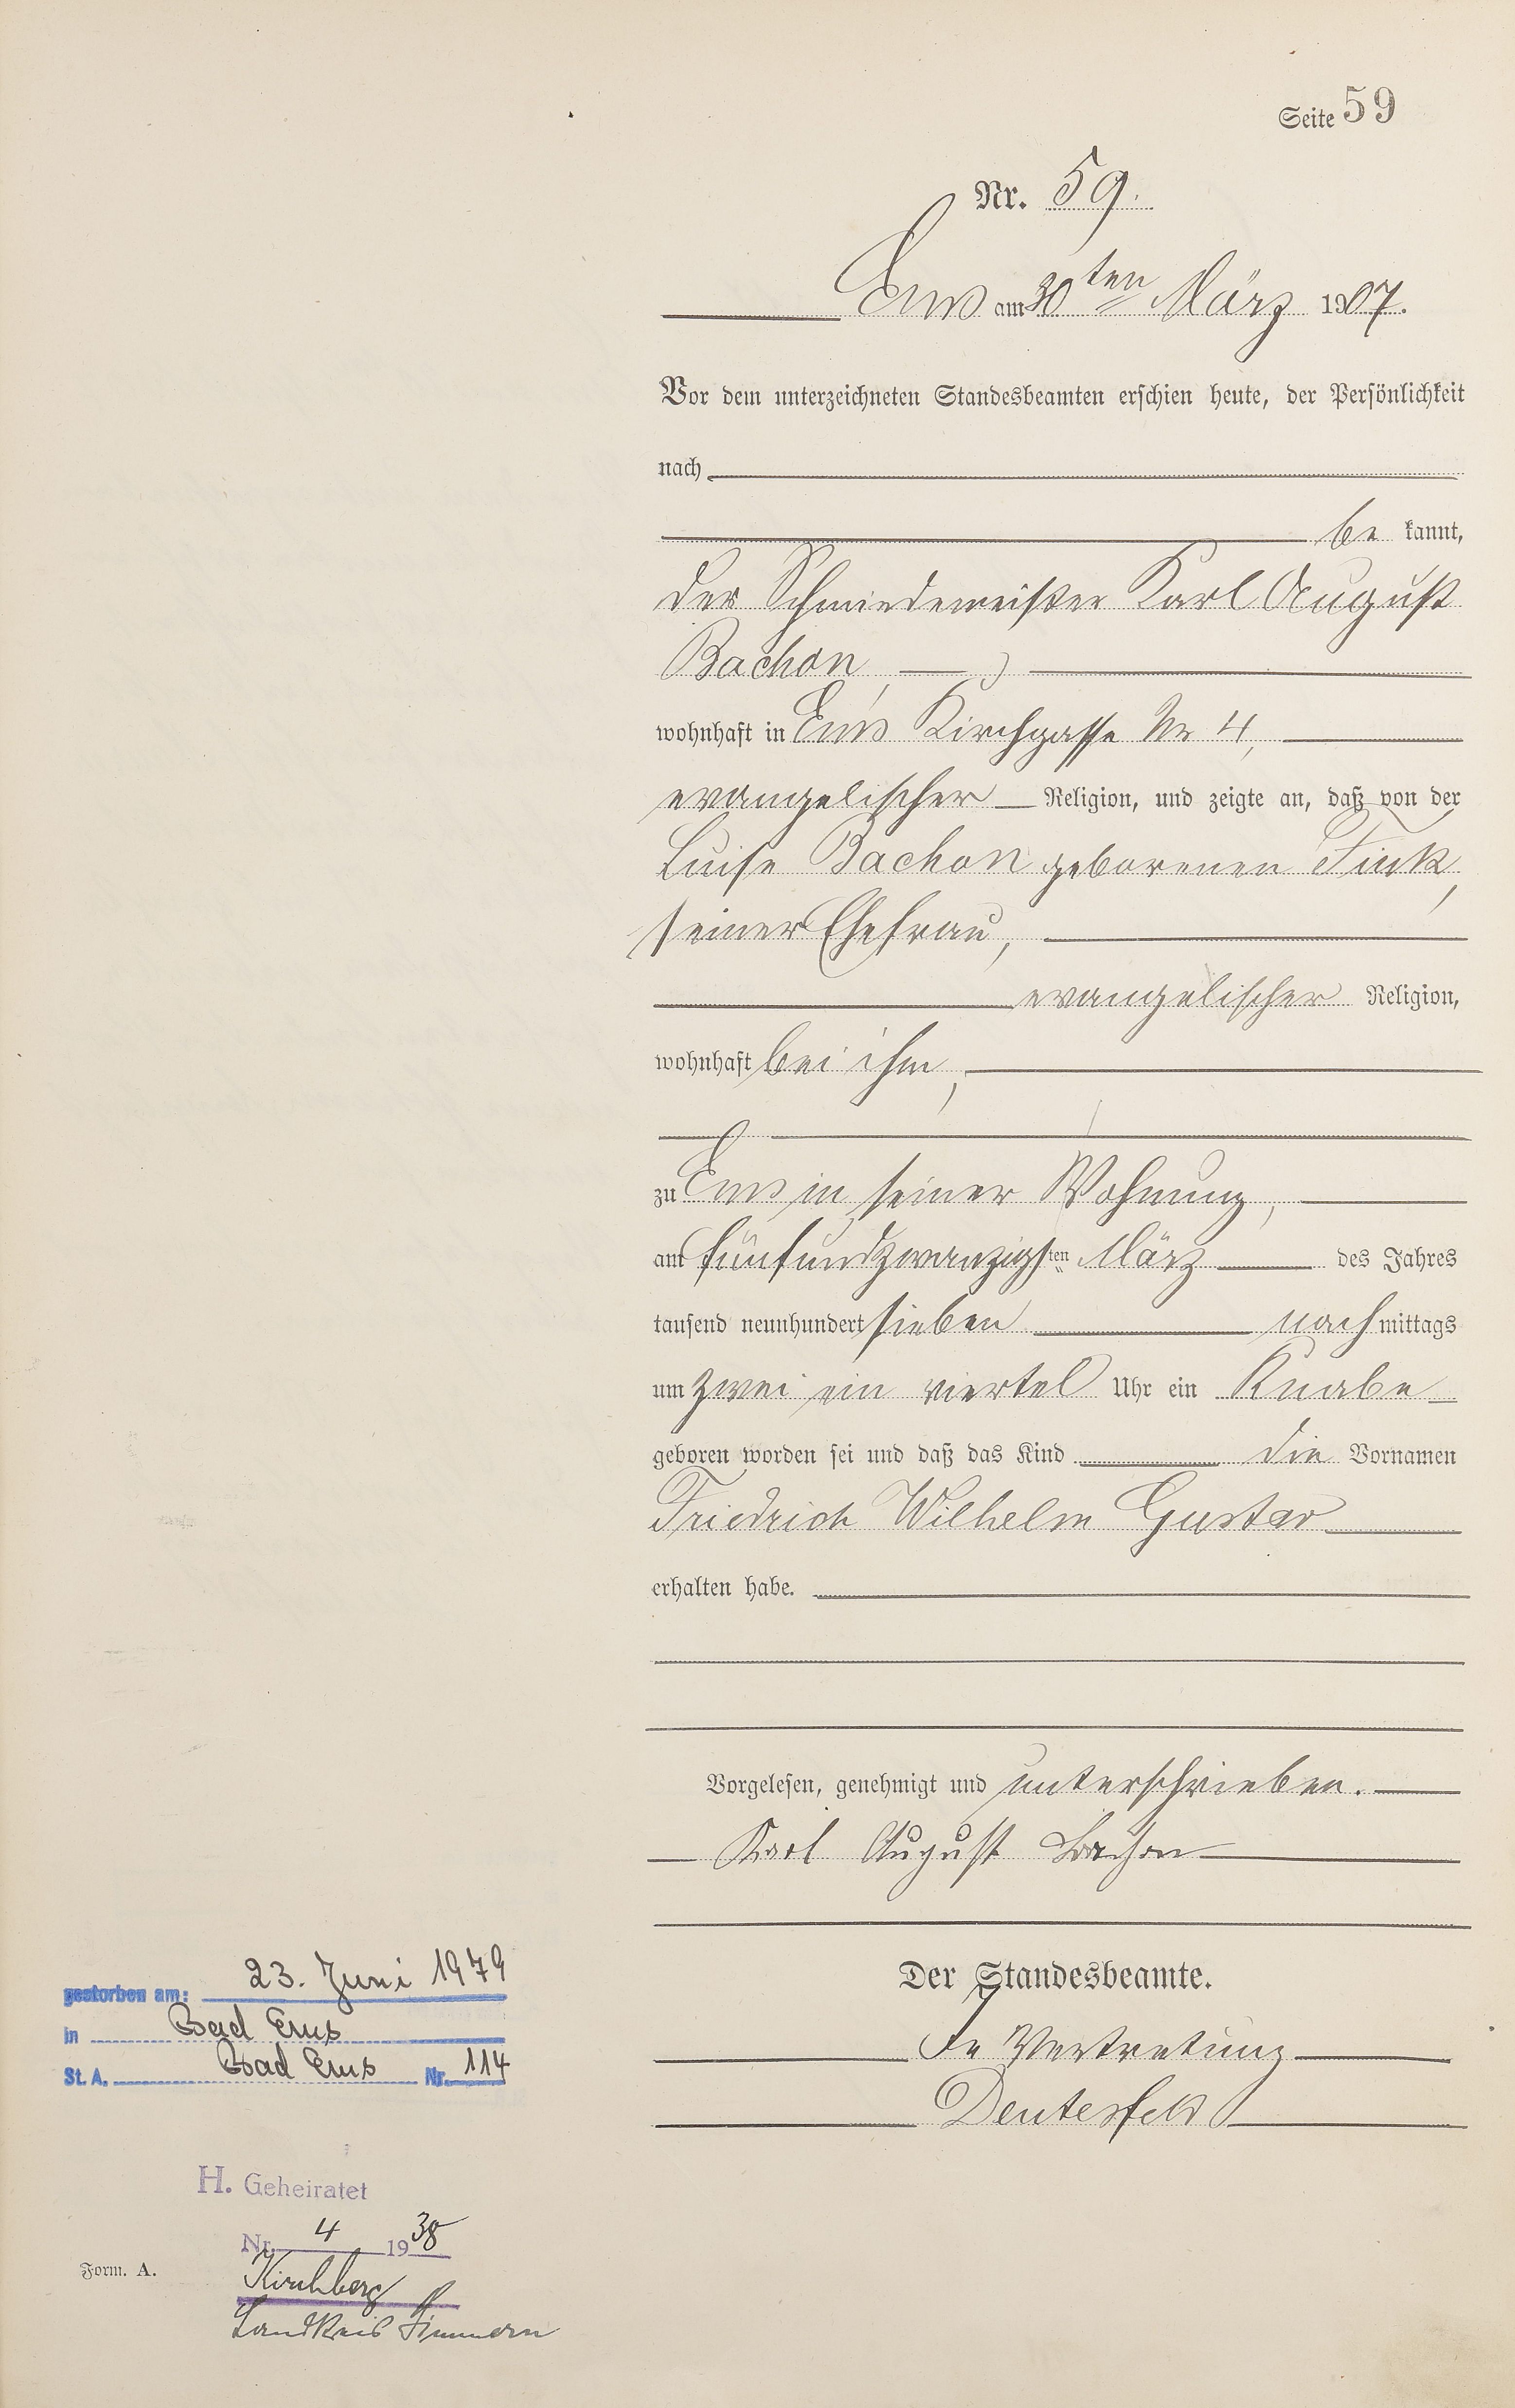 Seite 59
Nr. 59.
Ems am 30ten März 1907.
Vor dem unterzeichneten Standesbeamten erschien heute, der Persönlichkeit
nach
be kannt,
der Schmiedemeister Karl August
Bachon,
wohnhaft in Ems Kirchgasse Nr 4,
evangelischer Religion, und zeigte an, daß von der
Luise Bachon geborenen Fink,
seiner Ehefrau,
evangelischer Religion,
wohnhaft bei ihm,
zu Ems in seiner Wohnung,
am fünfundzwanzigsten März des Jahres
tausend neunhundert sieben nachmittags
um zwei ein viertel Uhr ein Knabe
geboren worden sei und daß das Kind die Vornamen
Friedrich Wilhelm Gustav
erhalten habe.
Vorgelesen, genehmigt und unterschrieben.
Karl August Bachon
Der Standesbeamte.
In Vertretung
Deutesfeld
gestorben am: 23. Juni 1979
in Bad Ems
St. A. Bad Ems Nr. 114
H. Geheiratet
Nr. 4 1938
Kirchberg
Landkreis Simmern
Form. A.